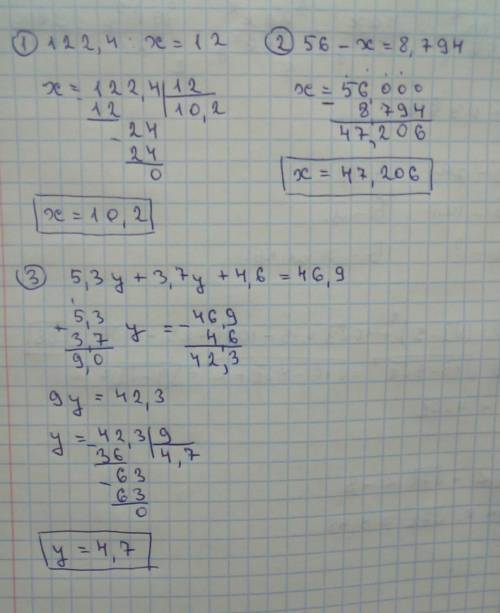 ① 122,4 : x = 12
x = 122,4 | 12
12 | 10,2
- 24
24
0
x = 10,2
② 56 - x = 8,794
x = 56,000
- 8 794
47,206
x = 47,206
③ 5,3y + 3,7y + 4,6 = 46,9
+ 5,3 y = - 46,9
3,7 4,6
9,0 42,3
9y = 42,3
y = - 42,3 | 9
36 | 4,7
- 63
63
0
y = 4,7